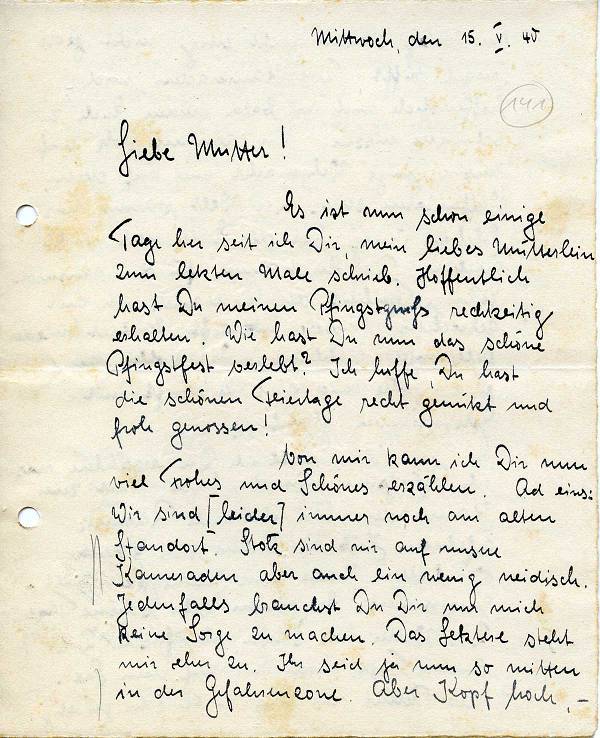 Mittwoch, den 15. V. 40
141
Liebe Mutter!
Es ist nun schon einige
Tage her seit ich Dir, mein liebes Mütterlein
zum letzten Male schrieb. Hoffentlich
hast Du meinen Pfingstgruß rechtzeitig
erhalten. Wie hast Du nun das schöne
Pfingstfest verlebt? Ich hoffe, Du hast
die schönen Feiertage recht genützt und
froh genossen!
Von mir kann ich Dir nun
viel Frohes und Schönes erzählen. Ad eins:
Wir sind [leider] immer noch am alten
Standort. Stolz sind wir auf unsere
Kameraden aber auch ein wenig neidisch.
Jedenfalls brauchst Du Dir um mich
keine Sorge zu machen. Das Letztere steht
mir eher zu. Ihr seid ja nun so mitten
in der Gefahrenzone. Aber Kopf hoch, –